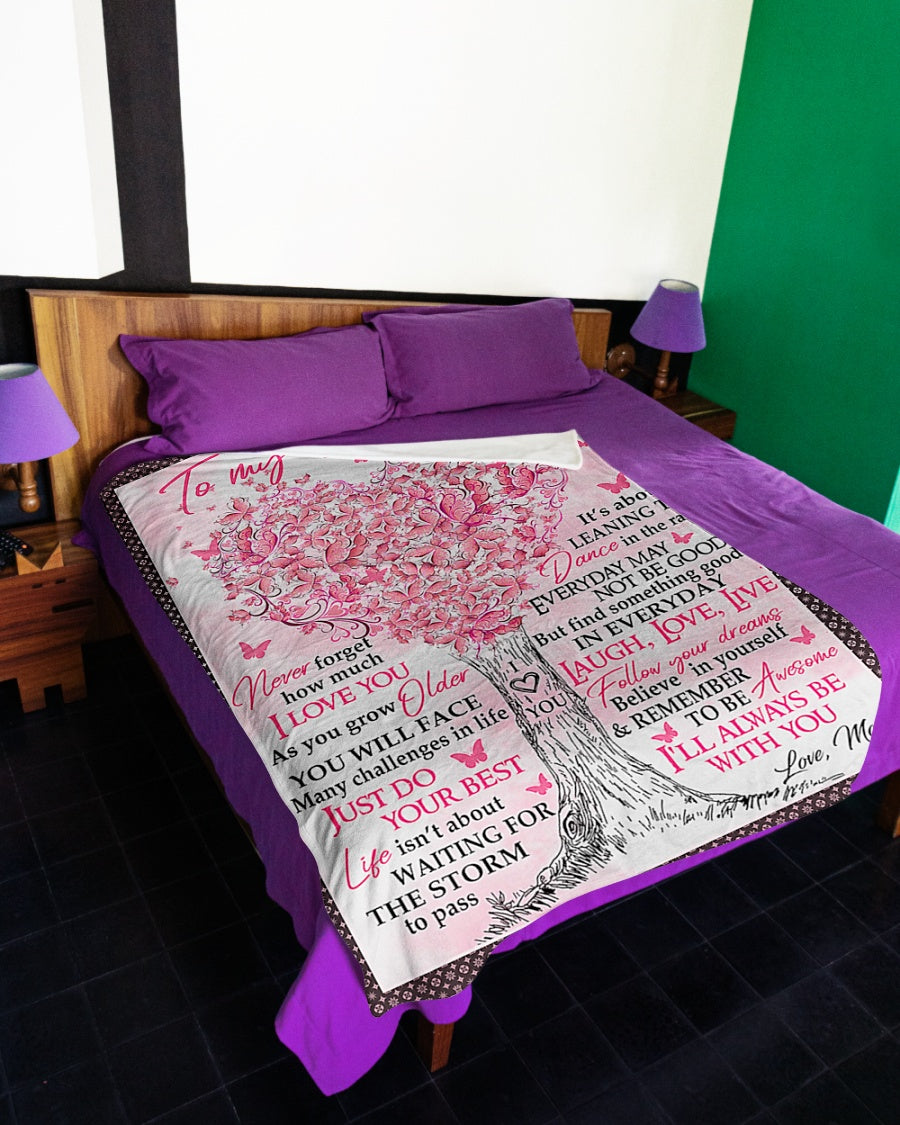 To my
Never forget
how much
I LOVE YOU
As you grow Older
YOU WILL FACE
Many challenges in life
JUST DO
YOUR BEST
Life isn't about
WAITING FOR
THE STORM
to pass
I
YOU
It's abo
LEANING T
Dance in the ra
EVERYDAY MAY
NOT BE GOOD
But find something good
IN EVERYDAY
LAUGH, LOVE, LIVE
Follow your dreams
Believe in yourself
& REMEMBER
TO BE Awesome
I'LL ALWAYS BE
WITH YOU
Love, Mo